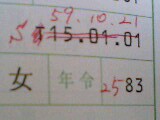 59.10.21
S 15.01.01
女 年令 2583